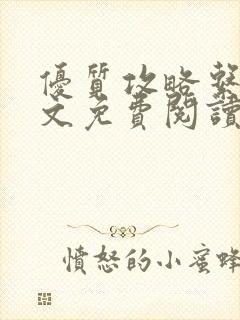 優質攻略繫
文免費閱讀
憤怒的小蜜蜂